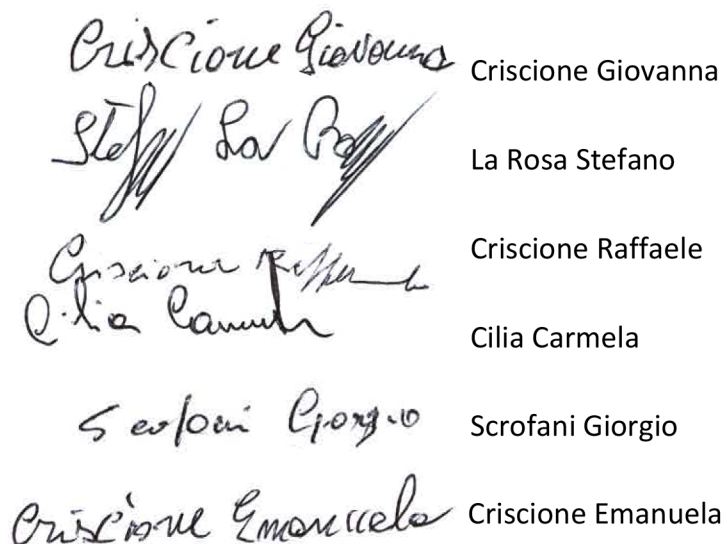 Criscione Giovanna Criscione Giovanna
Stef La Ros La Rosa Stefano
Criscione Raffaele Criscione Raffaele
Cilia Carmela Cilia Carmela
Scrofani Giorgio Scrofani Giorgio
Criscione Emanuela Criscione Emanuela